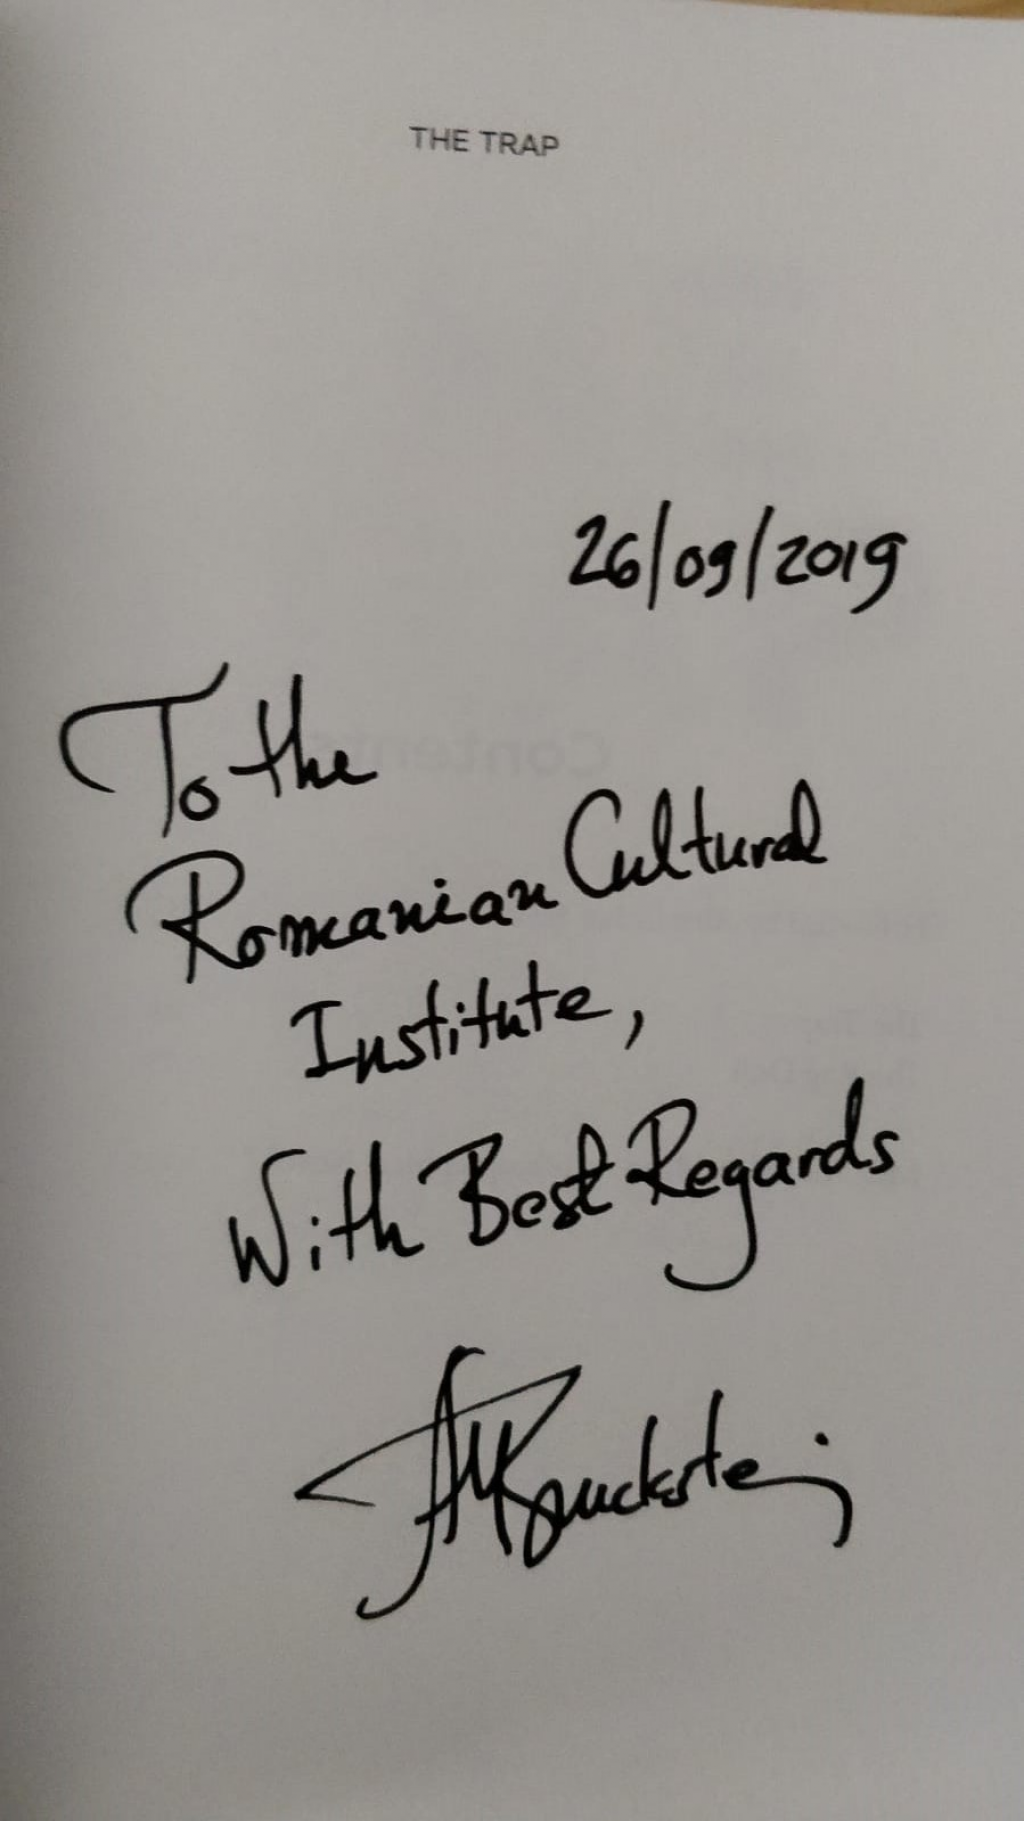 THE TRAP
26/09/2019
To the
Contents
Romanian Cultural
Institute,
With Best Regards